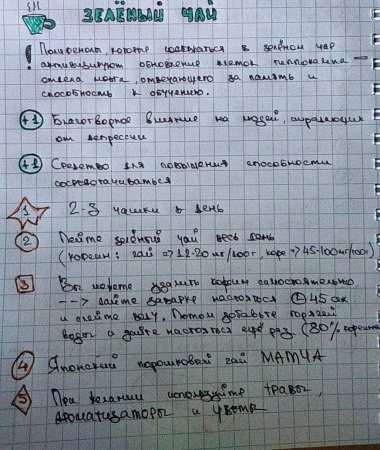 ЗЕЛЁНЫЙ ЧАЙ
! Полифенолы, которые содержатся в зелёном чае
активизируют обновление клеток гиппокампа –
отдела мозга, отвечающего за память и
способность к обучению.
+1 Благотворное влияние на людей, страдающих
от депрессии
+1 Средство для повышения способности
сосредотачиваться
1 2-3 чашки в день
2 Пейте зелёный чай весь день
(кофеин: чай => 12-20 мг/100г, кофе => 45-100мг/100г)
3 Вы можете удалить кофеин самостоятельно
--> дайте заварке настояться 45 сек
и слейте воду. Потом добавьте горячей
воды и дайте настояться ещё раз (80% кофеина
4 Японский порошковый чай МАТЧА
5 При желании используйте травы,
ароматизаторы и цветы